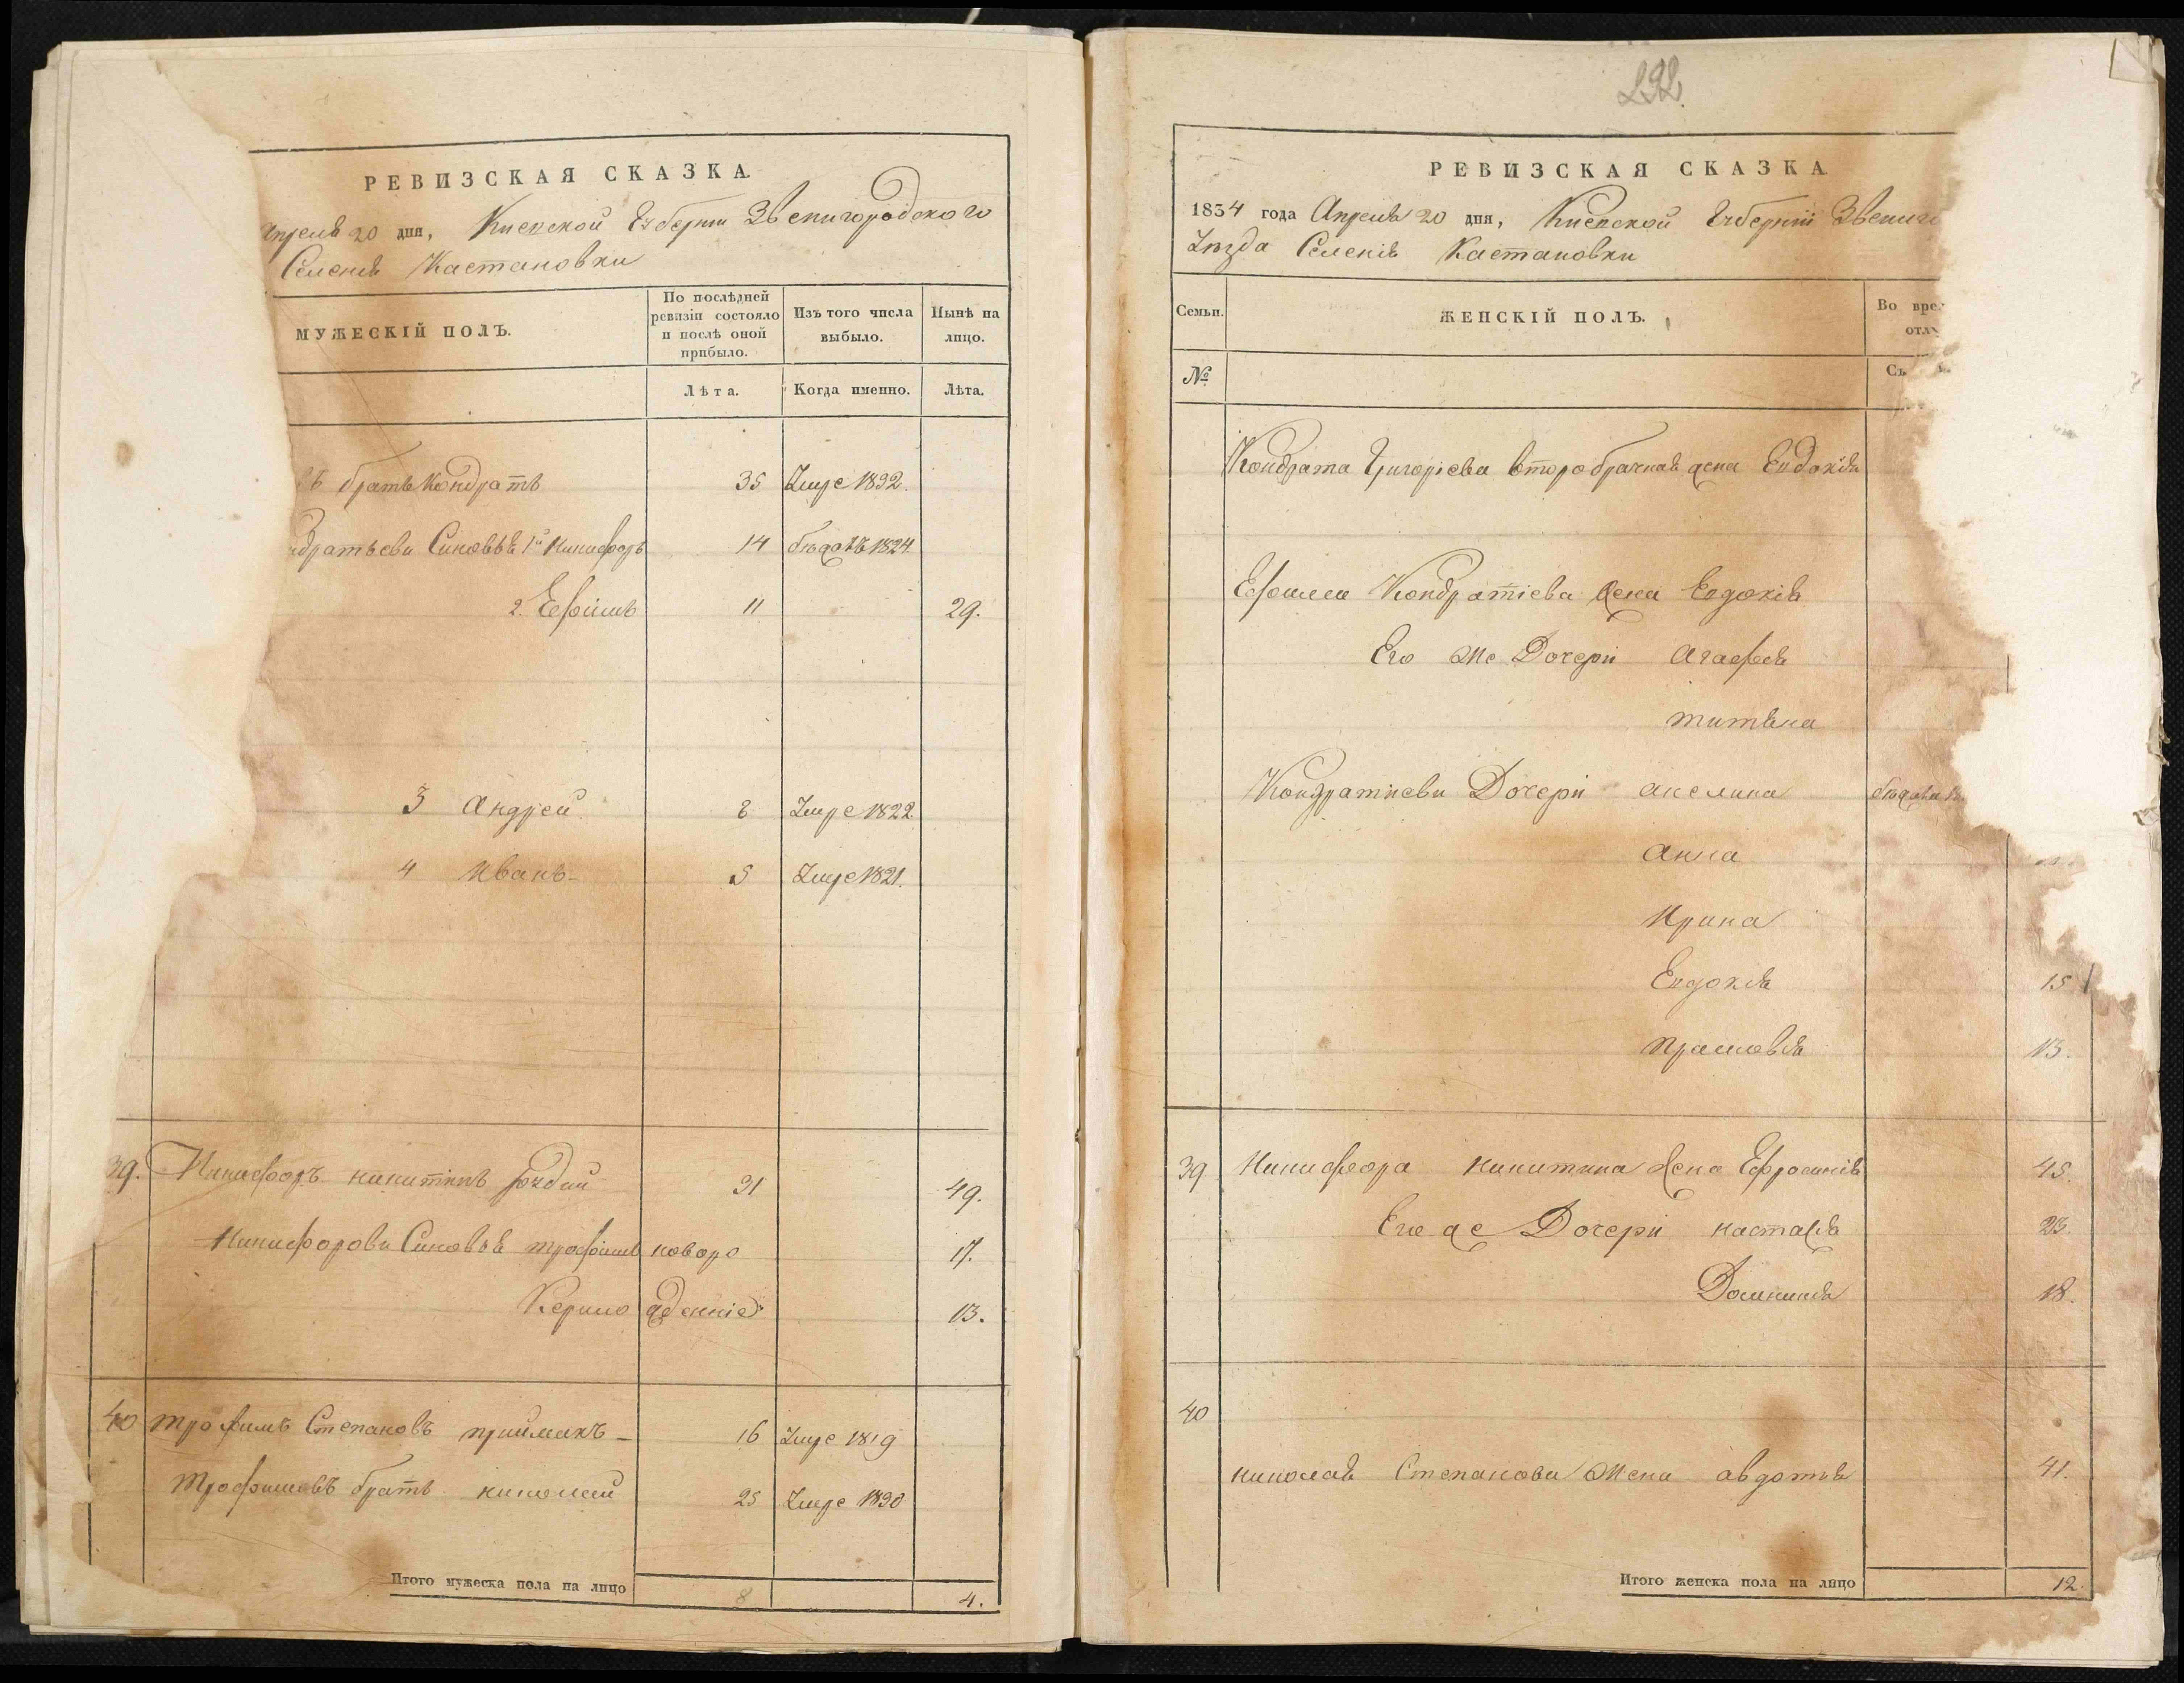 РЕВИЗСКАЯ СКАЗКА.
Апреля 20 дня, Киевской Губернии Звенигородского
Селения Кастановки
МУЖЕСКІЙ ПОЛЪ.
По послѣдней ревизіи состояло и послѣ оной прибыло.
Изъ того числа выбыло.
Нынѣ на лицо.
Лѣта.
Когда именно.
Лѣта.
братъ Кондратъ 35 Умре 1832.
дратьеви Синовья 1й Никифоръ 14 бѣжалъ 1824.
2. Ефимъ 11 29.
3 Андрей 8 Умре 1822
4 Иванъ 5 Умре 1821.
39. Никифоръ никитинъ 31 49.
Никифорови Синовья трофимъ новоро 17.
Керило жденніе 13.
40 трофимъ Степановъ приймакъ 16 Умре 1819
Трофимовъ братъ николай 25 Умре 1830
Итого мужеска пола на лицо 8 4.
292
РЕВИЗСКАЯ СКАЗКА
1834 года Апреля 20 дня, Киевской Губерніи Звениго
Уѣзда Селенія Кастановки
Семьи.
ЖЕНСКІЙ ПОЛЪ.
Во вре
отл
№
Съ
Кондрата Григоріева второбрачная жена Евдокія
Ефима Кондратіева жена Евдокія
Его же Дочери Агафія
титяна
Кондратіеви Дочери акелина
Анна
Ирина
Евдокія 15
Прасковія 13.
39 Никифора никитина жена Ефросинія 45.
Его же Дочери настасія 23.
Доминикія 18.
40
николая Степанова жена авдотія 41.
Итого женска пола на лицо 12.